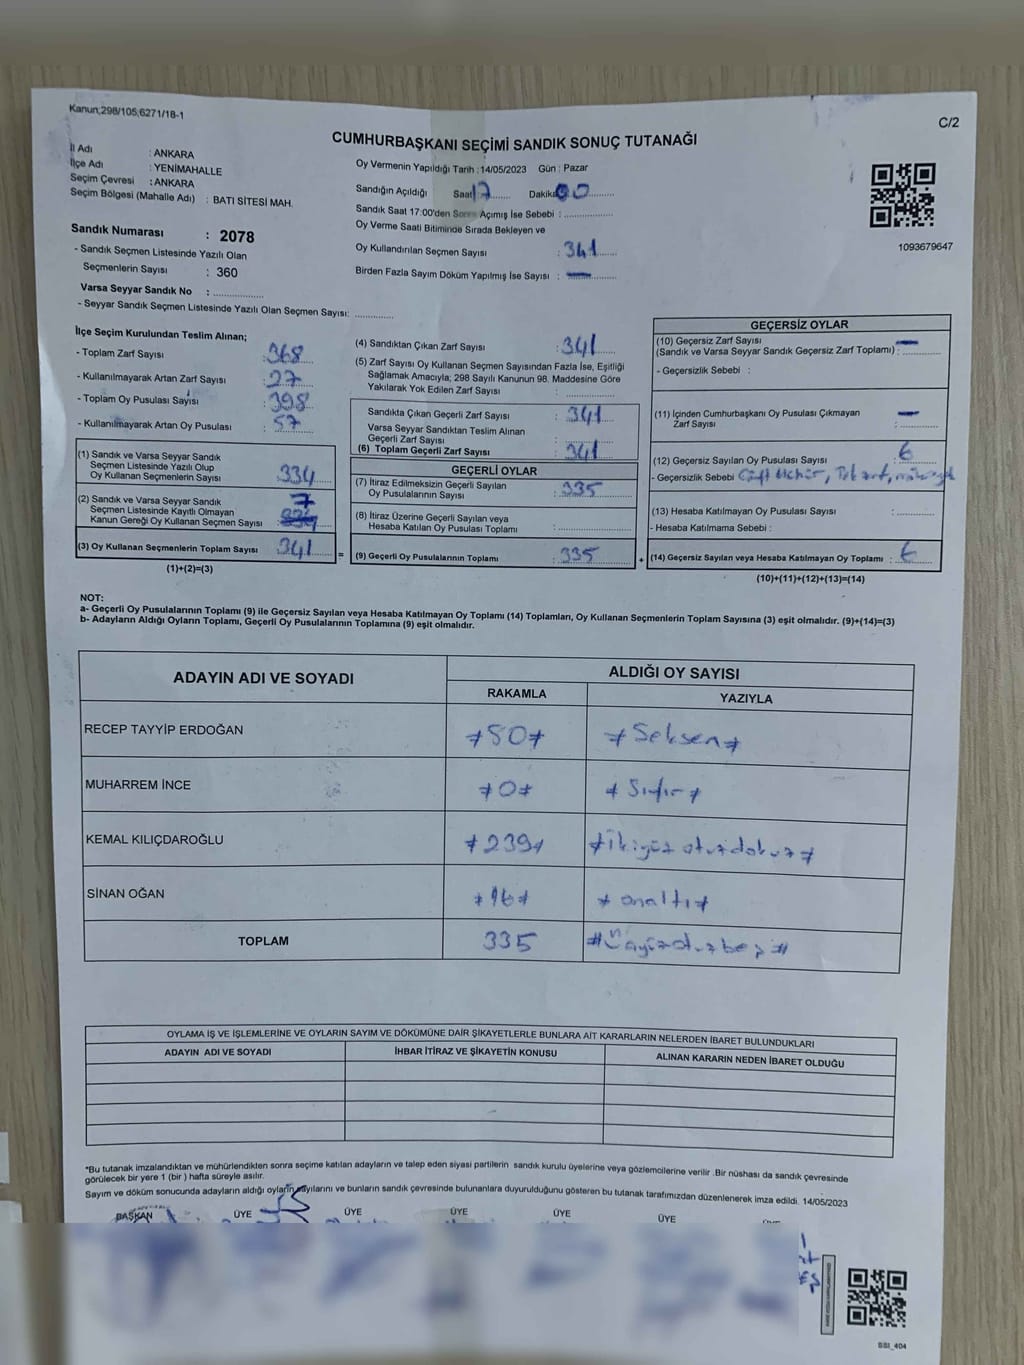 Kanun;298/105;6271/18-1
C/2
CUMHURBAŞKANI SEÇİMİ SANDIK SONUÇ TUTANAĞI
İl Adı : ANKARA
İlçe Adı : YENİMAHALLE
Seçim Çevresi : ANKARA
Seçim Bölgesi (Mahalle Adı) : BATI SİTESİ MAH.
Oy Vermenin Yapıldığı Tarih :14/05/2023 Gün : Pazar
Sandığın Açıldığı Saat 17 Dakika 00
Sandık Saat 17:00'den Sonra Açımış İse Sebebi :
Oy Verme Saati Bitiminde Sırada Bekleyen ve
Oy Kullandırılan Seçmen Sayısı : 341
Birden Fazla Sayım Döküm Yapılmış İse Sayısı : —
1093679647
Sandık Numarası : 2078
- Sandık Seçmen Listesinde Yazılı Olan
Seçmenlerin Sayısı : 360
Varsa Seyyar Sandık No :
- Seyyar Sandık Seçmen Listesinde Yazılı Olan Seçmen Sayısı:
İlçe Seçim Kurulundan Teslim Alınan;
- Toplam Zarf Sayısı : 368
- Kullanılmayarak Artan Zarf Sayısı : 27
- Toplam Oy Pusulası Sayısı : 398
- Kullanılmayarak Artan Oy Pusulası : 57
(1) Sandık ve Varsa Seyyar Sandık
Seçmen Listesinde Yazılı Olup
Oy Kullanan Seçmenlerin Sayısı : 334
(2) Sandık ve Varsa Seyyar Sandık
Seçmen Listesinde Kayıtlı Olmayan
Kanun Gereği Oy Kullanan Seçmen Sayısı : 7
(3) Oy Kullanan Seçmenlerin Toplam Sayısı : 341
(1)+(2)=(3)
(4) Sandıktan Çıkan Zarf Sayısı : 341
(5) Zarf Sayısı Oy Kullanan Seçmen Sayısından Fazla İse, Eşitliği
Sağlamak Amacıyla; 298 Sayılı Kanunun 98. Maddesine Göre
Yakılarak Yok Edilen Zarf Sayısı :
Sandıkta Çıkan Geçerli Zarf Sayısı : 341
Varsa Seyyar Sandıktan Teslim Alınan
Geçerli Zarf Sayısı :
(6) Toplam Geçerli Zarf Sayısı : 341
GEÇERLİ OYLAR
(7) İtiraz Edilmeksizin Geçerli Sayılan
Oy Pusulalarının Sayısı : 335
(8) İtiraz Üzerine Geçerli Sayılan veya
Hesaba Katılan Oy Pusulası Toplamı :
= (9) Geçerli Oy Pusulalarının Toplamı : 335
GEÇERSİZ OYLAR
(10) Geçersiz Zarf Sayısı —
(Sandık ve Varsa Seyyar Sandık Geçersiz Zarf Toplamı) :
- Geçersizlik Sebebi :
(11) İçinden Cumhurbaşkanı Oy Pusulası Çıkmayan —
Zarf Sayısı :
(12) Geçersiz Sayılan Oy Pusulası Sayısı : 6
- Geçersizlik Sebebi Çift Mühür,
(13) Hesaba Katılmayan Oy Pusulası Sayısı :
- Hesaba Katılmama Sebebi :
+ (14) Geçersiz Sayılan veya Hesaba Katılmayan Oy Toplamı : 6
(10)+(11)+(12)+(13)=(14)
NOT:
a- Geçerli Oy Pusulalarının Toplamı (9) ile Geçersiz Sayılan veya Hesaba Katılmayan Oy Toplamı (14) Toplamları, Oy Kullanan Seçmenlerin Toplam Sayısına (3) eşit olmalıdır. (9)+(14)=(3)
b- Adayların Aldığı Oyların Toplamı, Geçerli Oy Pusulalarının Toplamına (9) eşit olmalıdır.
ADAYIN ADI VE SOYADI
ALDIĞI OY SAYISI
RAKAMLA YAZIYLA
RECEP TAYYİP ERDOĞAN ≠80≠ ≠Seksen≠
MUHARREM İNCE ≠0≠ ≠Sıfır≠
KEMAL KILIÇDAROĞLU ≠239≠ ≠ikiyüz otuzdokuz≠
SİNAN OĞAN ≠16≠ ≠onaltı≠
TOPLAM 335 #Üçyüzotuzbeş#
OYLAMA İŞ VE İŞLEMLERİNE VE OYLARIN SAYIM VE DÖKÜMÜNE DAİR ŞİKAYETLERLE BUNLARA AİT KARARLARIN NELERDEN İBARET BULUNDUKLARI
ADAYIN ADI VE SOYADI İHBAR İTİRAZ VE ŞİKAYETİN KONUSU ALINAN KARARIN NEDEN İBARET OLDUĞU
*Bu tutanak imzalandıktan ve mühürlendikten sonra seçime katılan adayların ve talep eden siyasi partilerin sandık kurulu üyelerine veya gözlemcilerine verilir .Bir nüshası da sandık çevresinde
görülecek bir yere 1 (bir ) hafta süreyle asılır.
Sayım ve döküm sonucunda adayların aldığı oyların sayılarını ve bunların sandık çevresinde bulunanlara duyurulduğunu gösteren bu tutanak tarafımızdan düzenlenerek imza edildi. 14/05/2023
BAŞKAN ÜYE ÜYE ÜYE ÜYE ÜYE
BSI_404